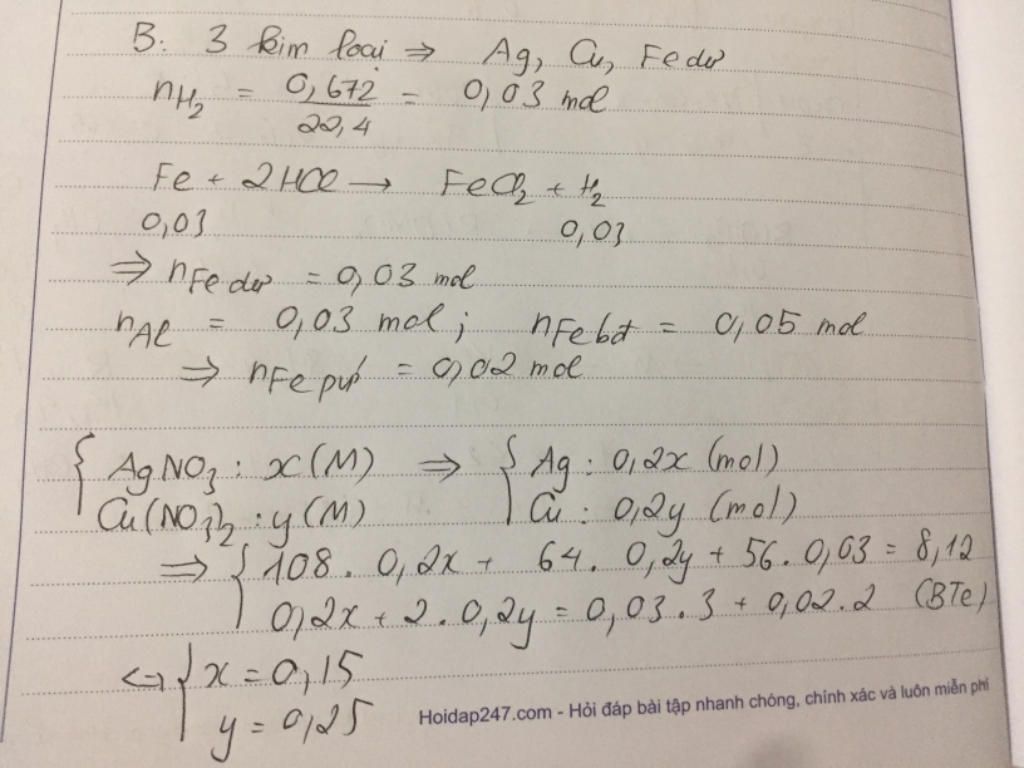 B: 3 kim loại ⇒ Ag, Cu, Fe dư
nH₂ = 0,672/22,4 = 0,03 mol
Fe + 2HCl → FeCl₂ + H₂
0,03 0,03
⇒ nFe dư = 0,03 mol
nAl = 0,03 mol; nFe bđ = 0,05 mol
⇒ nFe pứ = 0,02 mol
{ AgNO₃ : x (M) ⇒ { Ag : 0,2x (mol)
Cu(NO₃)₂ : y (M) Cu : 0,2y (mol)
⇒ { 108. 0,2x + 64. 0,2y + 56. 0,03 = 8,12
0,2x + 2. 0,2y = 0,03.3 + 0,02.2 (BTe)
⇔ { x = 0,15
y = 0,25
Hoidap247.com - Hỏi đáp bài tập nhanh chóng, chính xác và luôn miễn phí